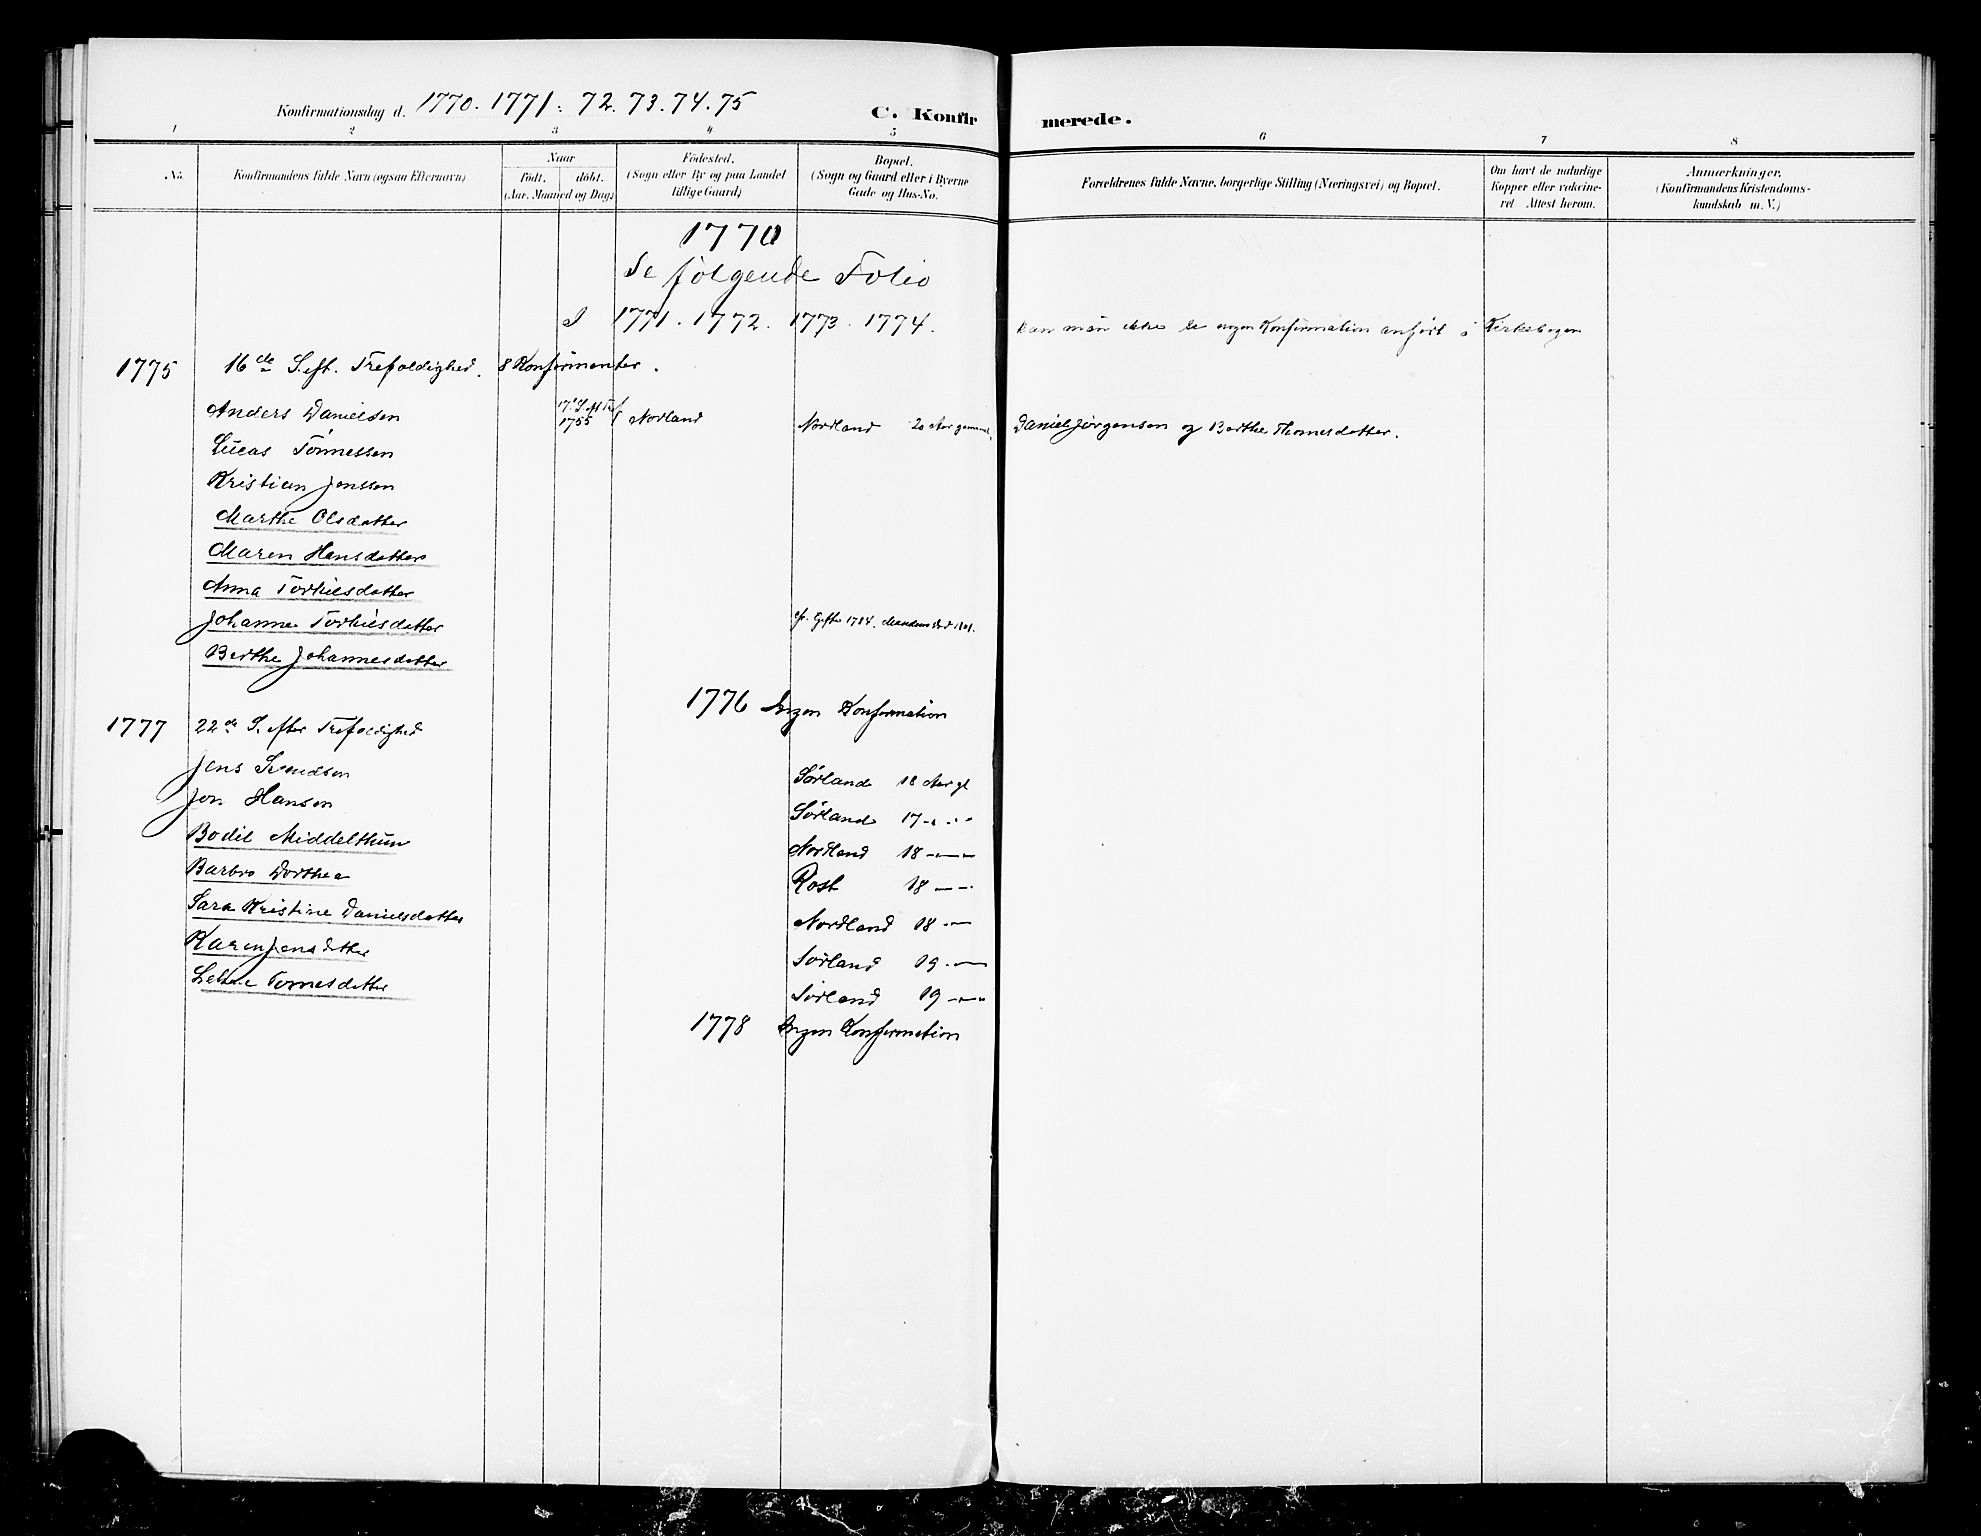 Konfirmationsdag d. 1770. 1771. 72. 73. 74. 75
C. Konfirmerede.
1 2 3 4 5 6 7 8
No. Konfirmandens fulde Navn (ogsaa Efternavn)
Naar
født. døbt.
(Aar, Maaned og Dag)
Fødested.
(Sogn eller By og paa Landet
tillige Gaard)
Bopæl.
(Sogn og Gaard eller i Byerne
Gade og Hus-No.
Forældrenes fulde Navne, borgerlige Stilling (Næringsvei) og Bopæl.
Om havt de naturlige
Kopper eller vakcine-
ret Attest herom.
Anmærkninger.
(Konfirmandens Kristendoms-
kundskab m. V.)
1770
Se følgende Folio
I 1771. 1772. 1773. 1774. kan man ikke se nogen Konfirmation anført i Kirkebogen
1775 16de S. eft. Trefoldighed. 8 Konfirmenter.
Anders Danielsen 17. S. eft Tref 1755 Nordland Nordland 20 Aar gammel. Daniel Jørgensen og Berthe Thomesdatter.
Lucas Tønnessen
Kristian Jenssen
Marthe Olsdatter
Maren Hansdatter
Anna Torkilsdatter
Johanne Torkilsdatter cfr. Gift 1784. Manden død
Berthe Johannesdatter
1776 Ingen Konfirmation
1777 22de S. efter Trefoldighed
Jens Svendsen Sørland 18 Aar gl
Jon Hansen Sørland 17 - " -
Bodil Middelthun Nordland 18 - " -
Barbro Dorthea Røst 18 - " -
Sara Kristine Danielsdatter Nordland 18 - " -
Karen Jensdatter Sørland 19 - " -
Tomesdatter Sørland 19 - " -
1778 Ingen Konfirmation